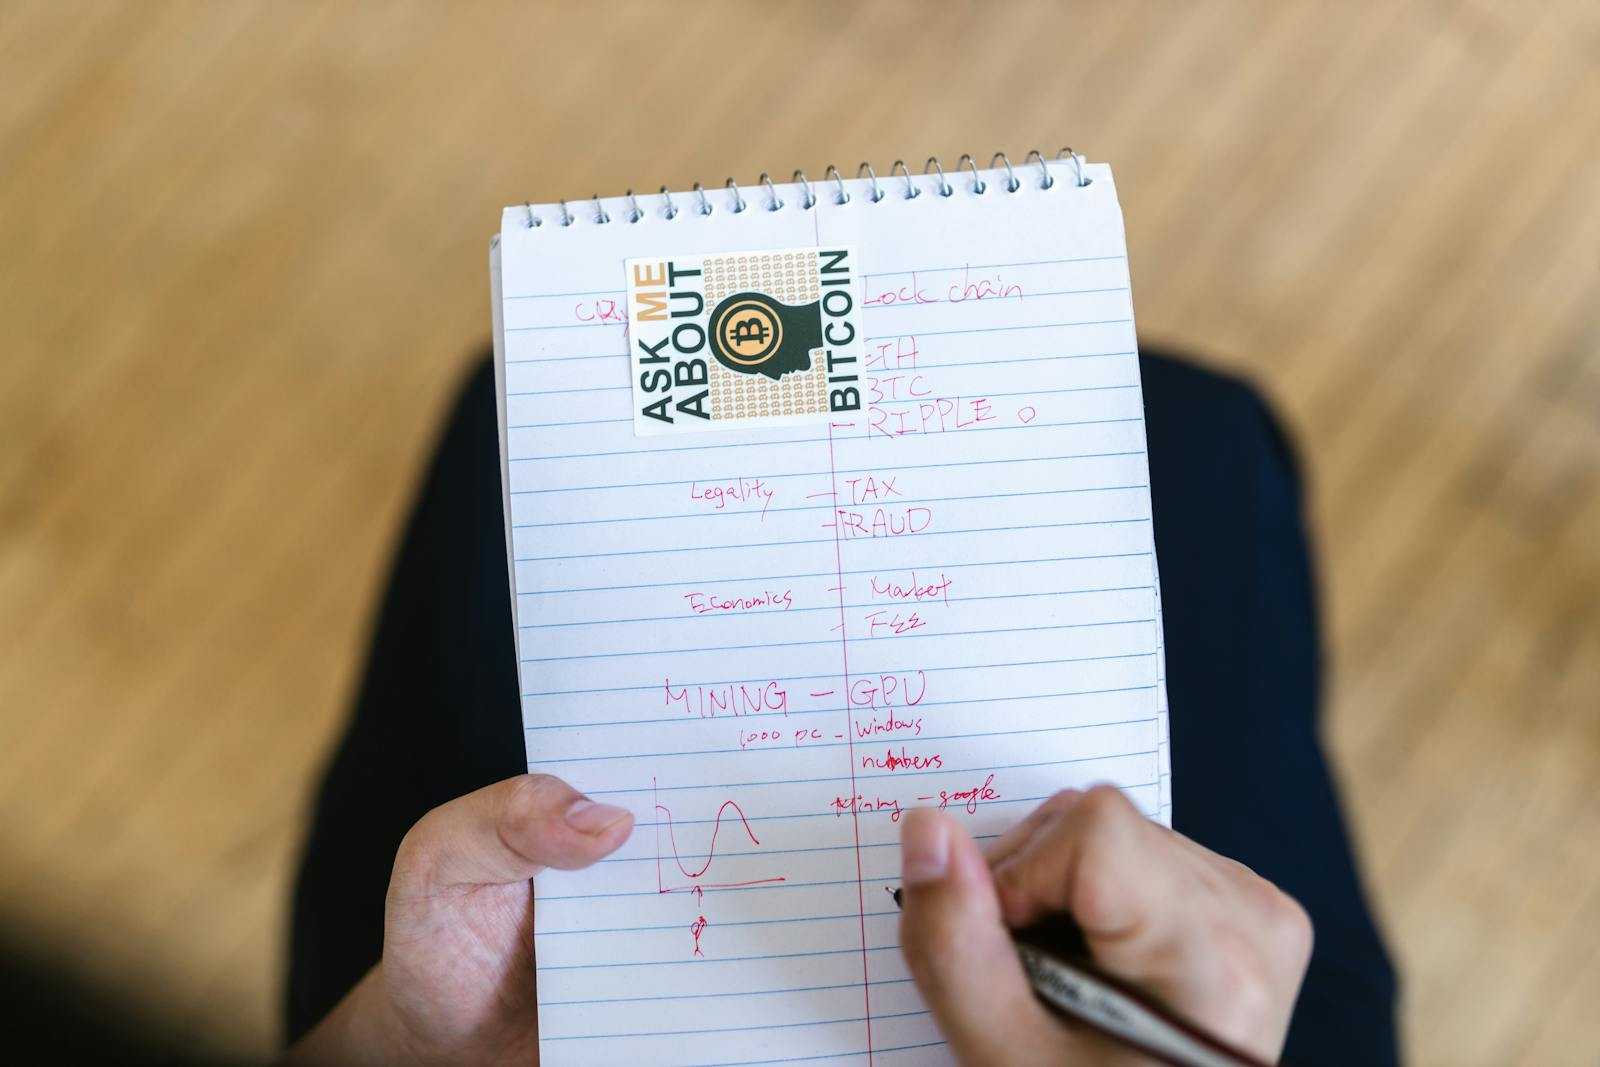 ASK ME
ABOUT
BITCOIN
lock chain
ETH
BTC
- RIPPLE
Legality - TAX
- FRAUD
Economics - Market
- FEE
MINING - GPU
1,000 pc - Windows
numbers
Mining - google